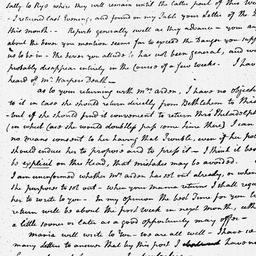 Sally to Rye where they will remain until the latter part of this Week
- I returned last Evening, and found on my Table your Letter of the
this month - Reports generally swell as they advance - your
about the Fever you mention seems far to exceed the Danger you
to be in - The Fever you allude to has not been general, and will
probably disappear entirely in the Course of a few weeks. I have
heard of Mr. Harpers Death -
as to your returning with Mrs. Ardon, I have no objection
to it in case she should return directly from Bethlehem to this
- but if she should find it convenient to return thro Philadelphia
(in which Case she would doubtless pass some time there) I can
no means consent to her having that Trouble, even if her politeness
should induce her to propose and to press it - I think it best
be explicit on this Head, that mistakes may be avoided.
I am uninformed whether Mrs. Ardon has set out already, or when
she purposes to set out - when your mama returns I shall request
her to write to you - In my opinion the best Time for you to
return will be about the first week in next month,
a little sooner or later as a good opportunity may offer -
maria will write to you - we are all well - I have so
many Letters to answer that by this post I have not